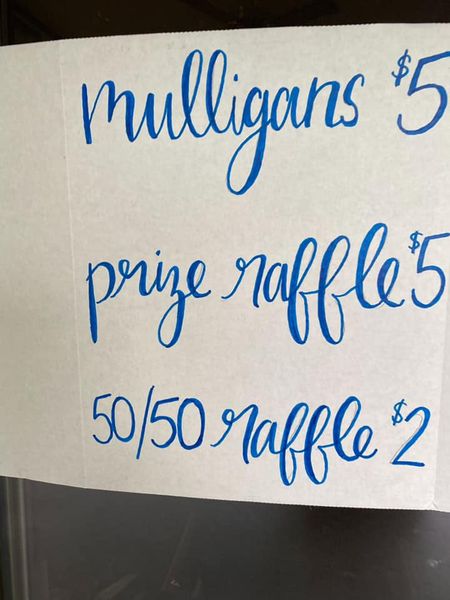 mulligans $5
prize raffle $5
50/50 raffle $2